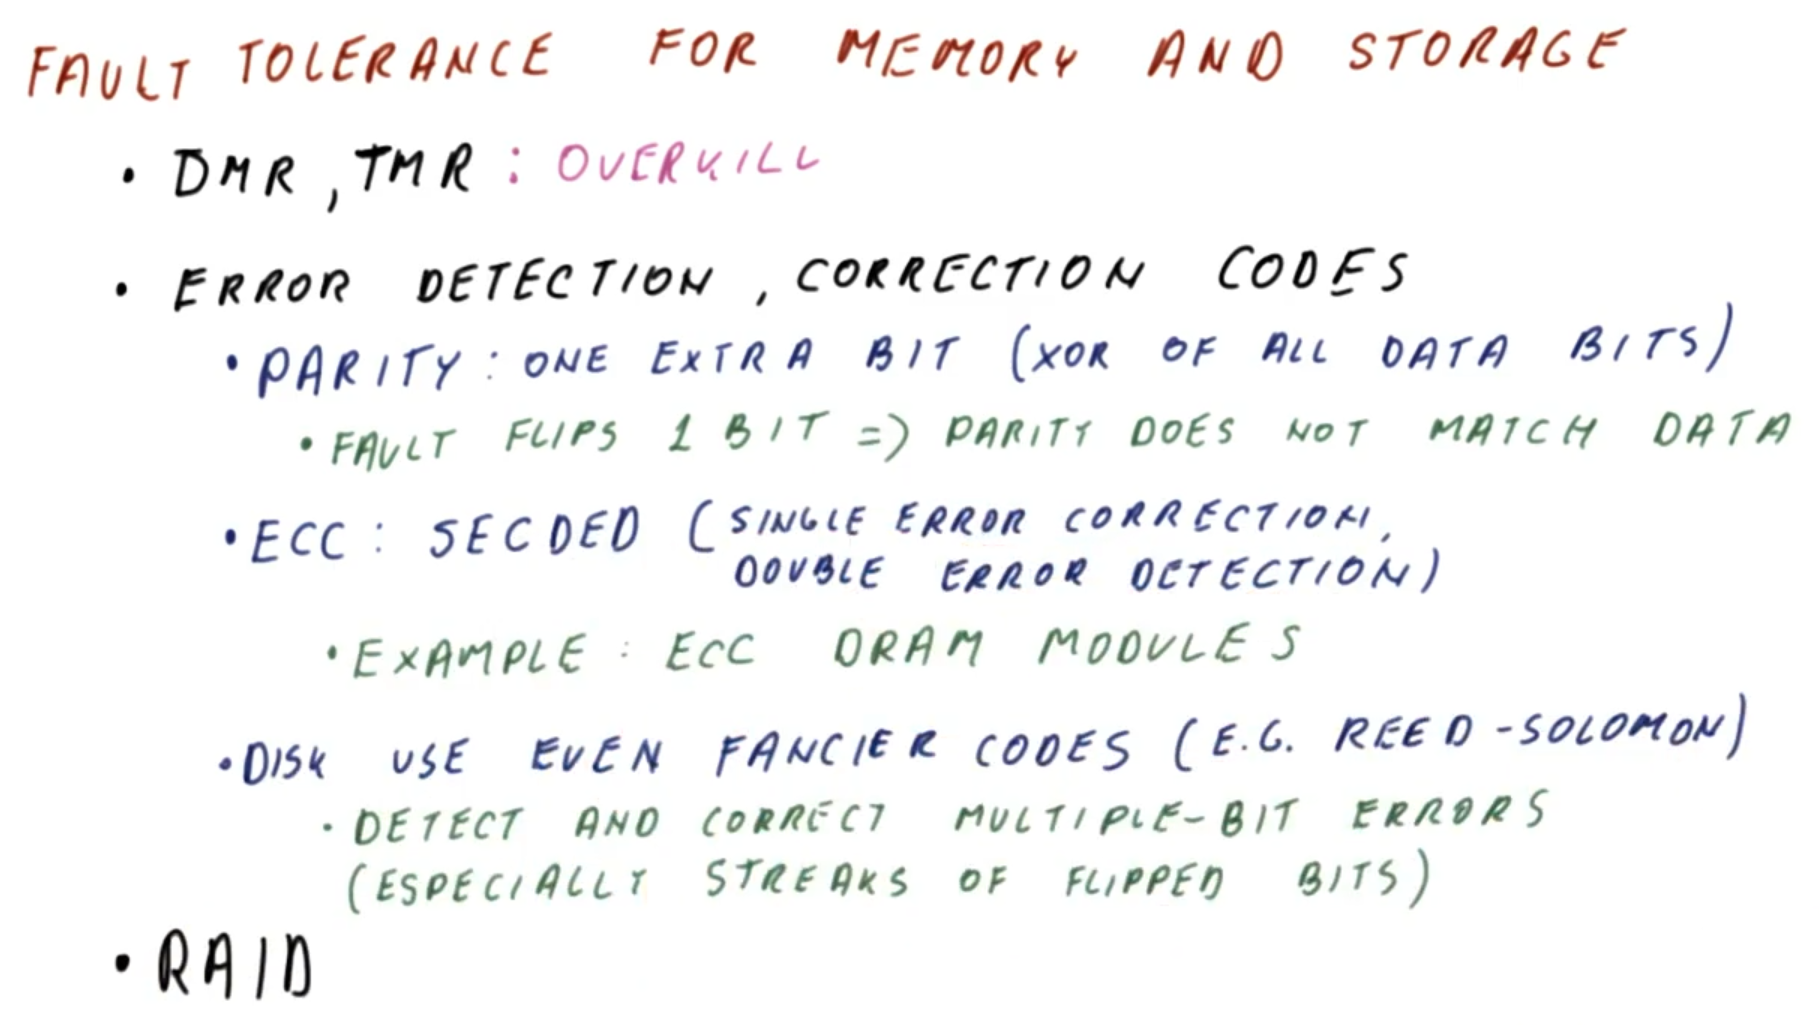 FAULT TOLERANCE FOR MEMORY AND STORAGE
• DMR, TMR : OVERKILL
• ERROR DETECTION, CORRECTION CODES
• PARITY: ONE EXTRA BIT (XOR OF ALL DATA BITS)
• FAULT FLIPS 1 BIT => PARITY DOES NOT MATCH DATA
• ECC: SECDED (SINGLE ERROR CORRECTION,
DOUBLE ERROR DETECTION)
• EXAMPLE: ECC DRAM MODULES
• DISK USE EVEN FANCIER CODES (E.G. REED-SOLOMON)
• DETECT AND CORRECT MULTIPLE-BIT ERRORS
(ESPECIALLY STREAKS OF FLIPPED BITS)
• RAID